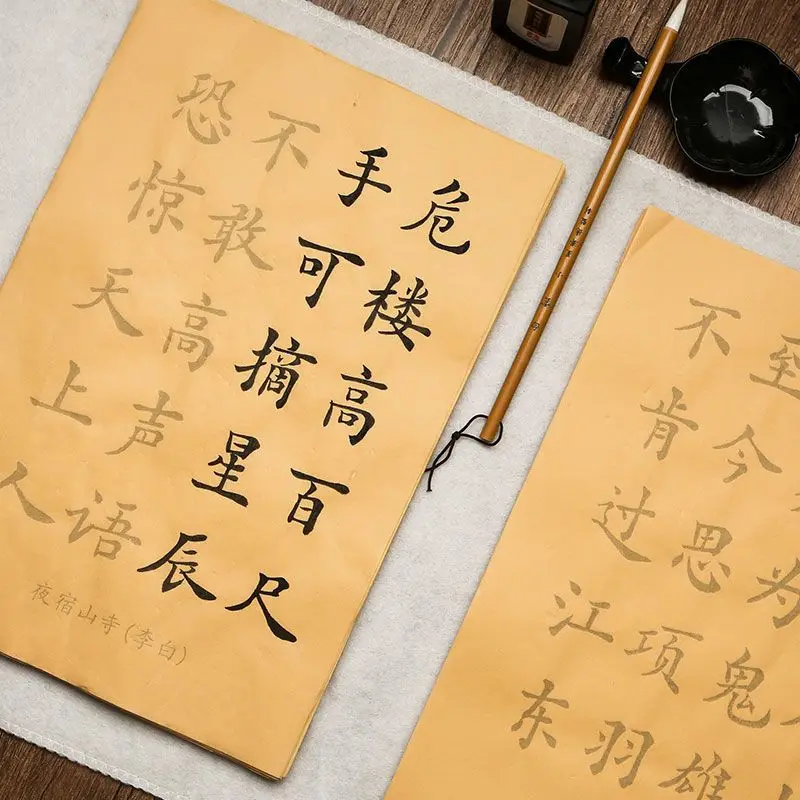 危楼高百尺
手可摘星辰
不敢高声语
恐惊天上人
夜宿山寺(李白)
为鬼雄
至今思项羽
不肯过江东